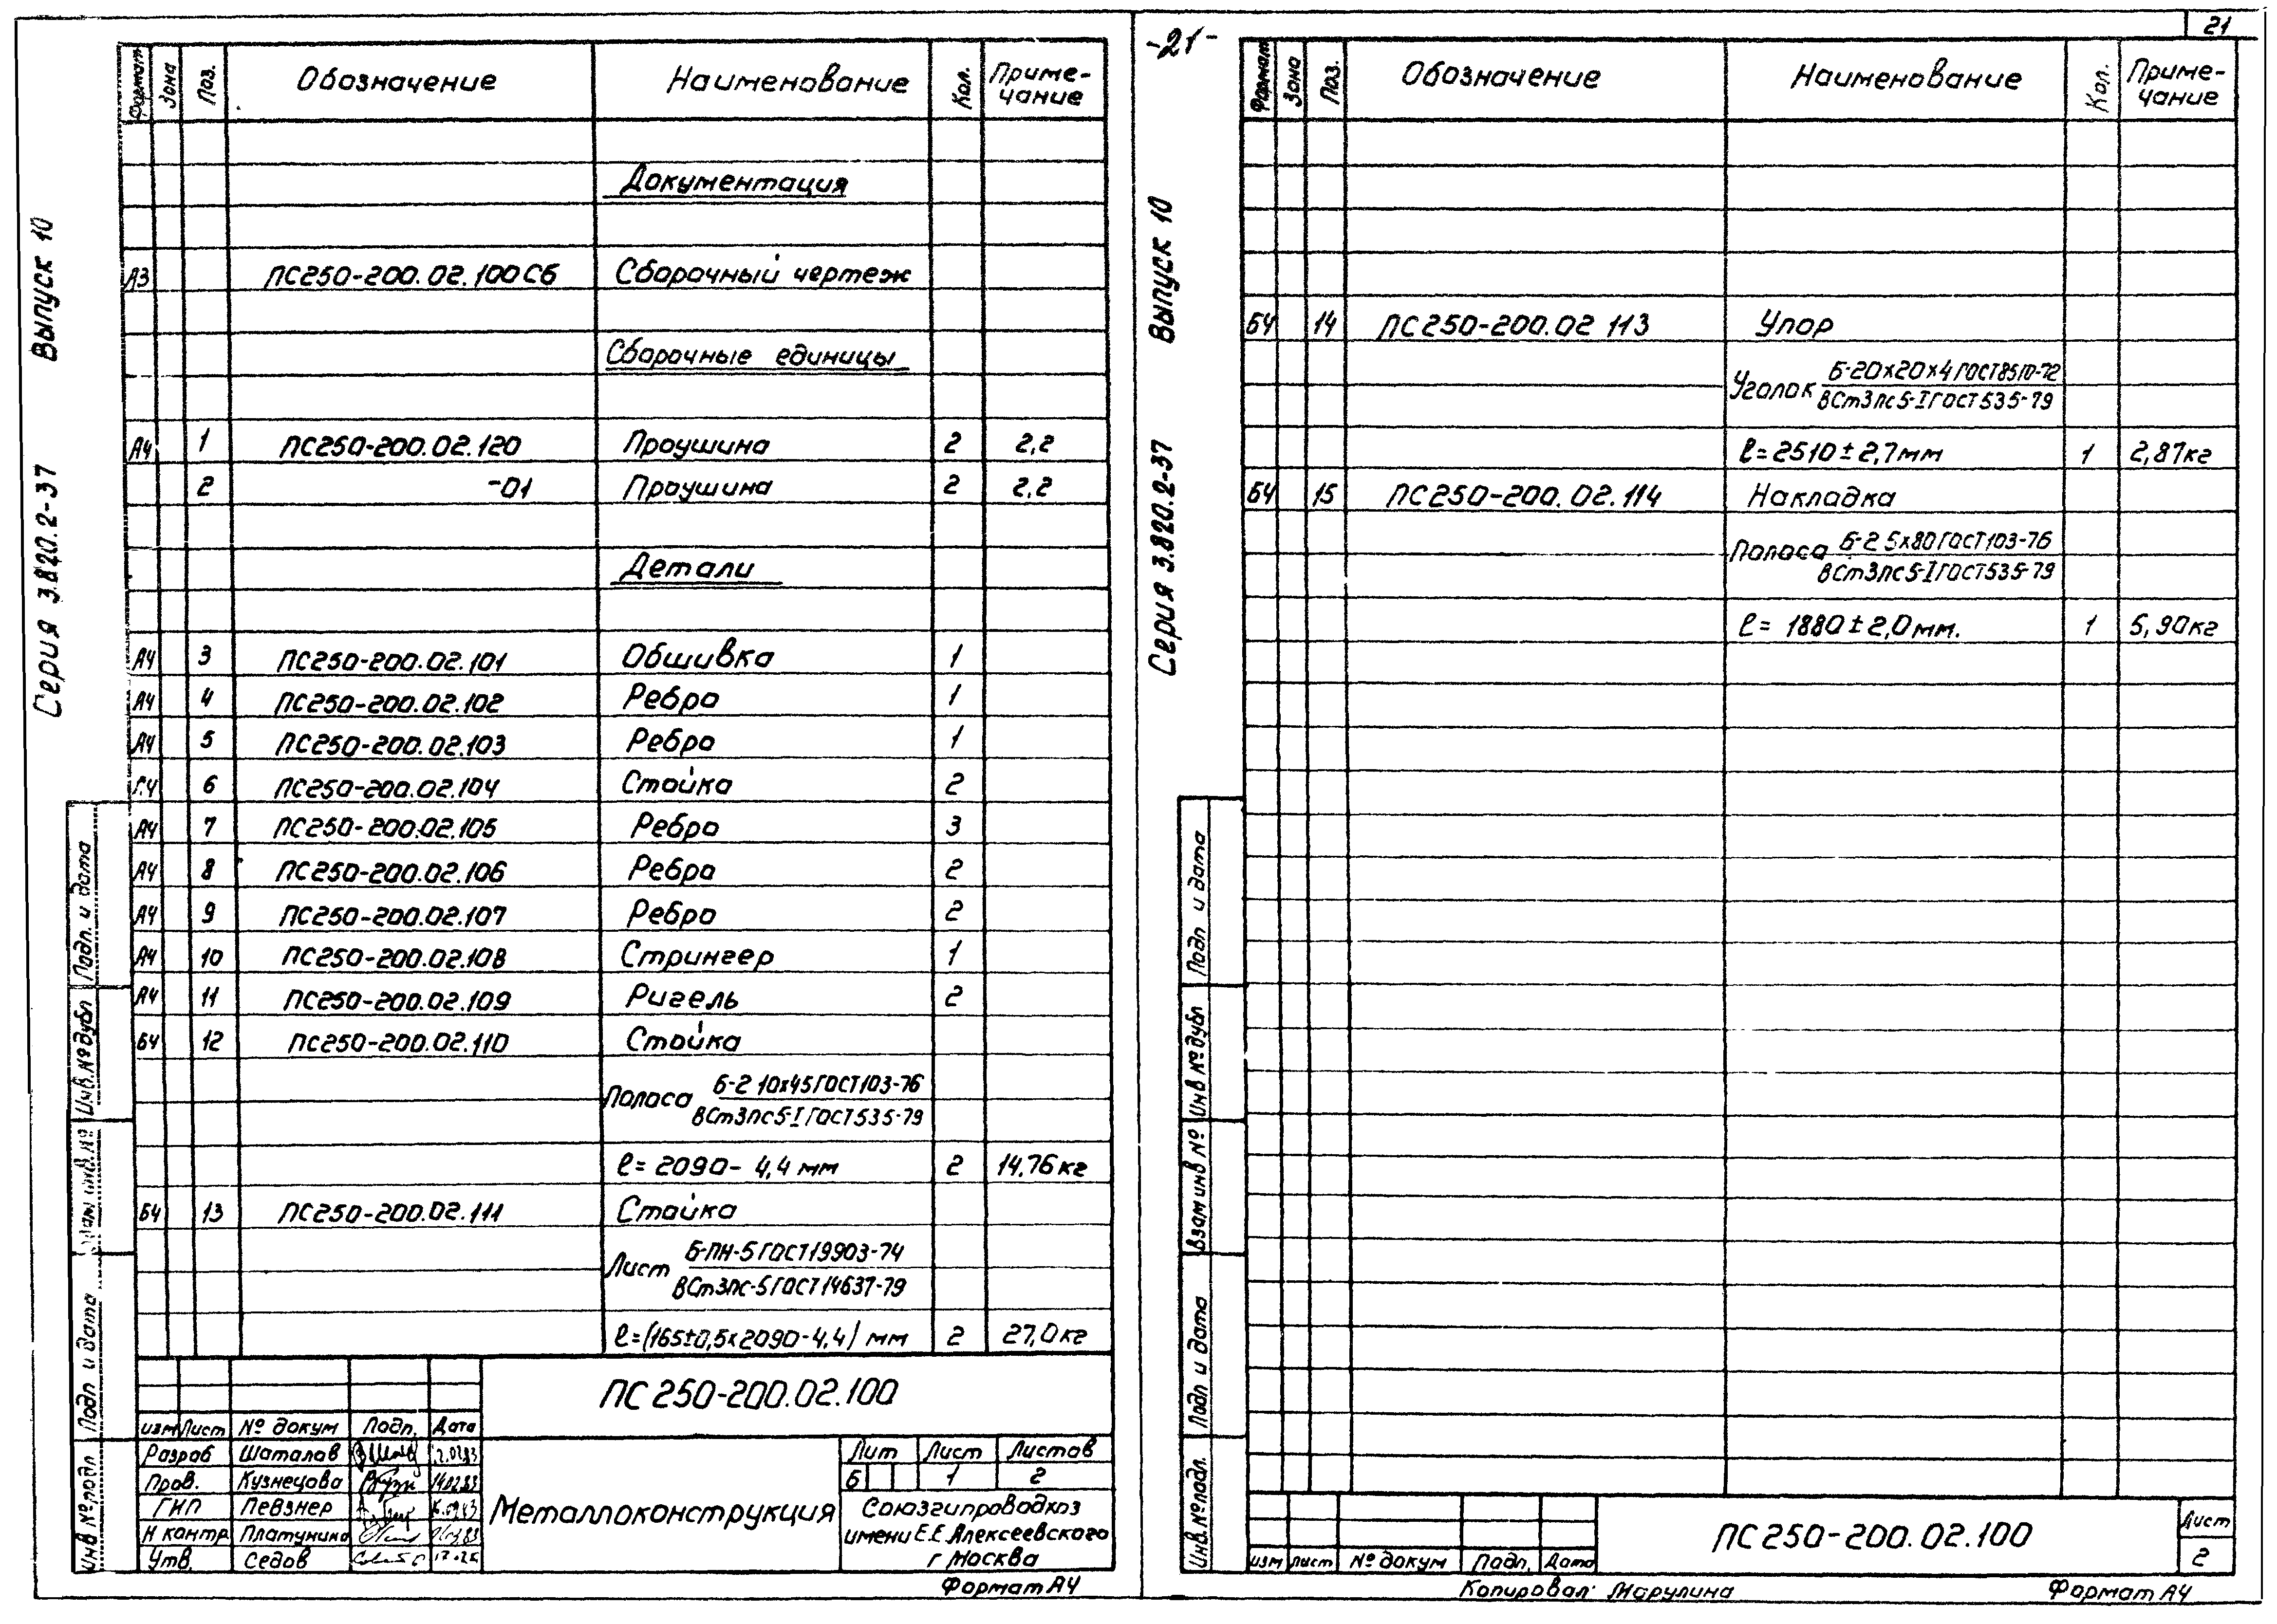 21
-21-
Серия 3.820.2-37 Выпуск 10
Формат Зона Поз. Обозначение Наименование Кол. Приме-чание
Документация
А3 ПС250-200.02.100СБ Сборочный чертеж
Сборочные единицы
А4 1 ПС250-200.02.120 Проушина 2 2,2
2 -01 Проушина 2 2,2
Детали
А4 3 ПС250-200.02.101 Обшивка 1
А4 4 ПС250-200.02.102 Ребро 1
А4 5 ПС250-200.02.103 Ребро 1
6 ПС250-200.02.104 Стойка 2
А4 7 ПС250-200.02.105 Ребро 3
А4 8 ПС250-200.02.106 Ребро 2
А4 9 ПС250-200.02.107 Ребро 2
А4 10 ПС250-200.02.108 Стрингер 1
А4 11 ПС250-200.02.109 Ригель 2
Б4 12 ПС250-200.02.110 Стойка
Полоса Б-2 10х45 ГОСТ 103-76
ВСт3пс5-I ГОСТ 535-79
ℓ= 2090- 4,4 мм 2 14,76 кг
Б4 13 ПС250-200.02.111 Стойка
Лист Б-ПН-5 ГОСТ 19903-74
ВСт3пс-5 ГОСТ 14637-79
ℓ=(165±0,5х2090-4,4) мм 2 27,0 кг
Подп. и дата
Инв.№дубл
инв.№
Подп и дата
Инв №подл
ПС 250-200.02.100
изм Лист № докум Подп. Дата
Разраб Шаталов
Пров. Кузнецова 14.02.83
ГИП Певзнер
Н контр Платунина
Утв. Седов
Металлоконструкция
Лит Лист Листов
Б 1 2
Союзгипроводхоз
имени Е.Е. Алексеевского
г Москва
Формат А4
Серия 3.820.2-37 Выпуск 10
Формат Зона Поз. Обозначение Наименование Кол. Приме-чание
Б4 14 ПС250-200.02 113 Упор
Уголок Б-20х20х4 ГОСТ 8510-72
ВСт3пс5-I ГОСТ 535-79
ℓ= 2510 ± 2,7 мм 1 2,87 кг
Б4 15 ПС250-200.02.114 Накладка
Полоса Б-2 5х80 ГОСТ 103-76
ВСт3пс5-I ГОСТ 535-79
ℓ= 1880 ± 2,0 мм. 1 5,90 кг
Подп и дата
Инв №дубл
Взам инв №
Подп и дата
Инв.№подл.
изм лист № докум Подп. Дата
ПС 250-200.02.100
Лист
2
Копировал: Марулина Формат А4